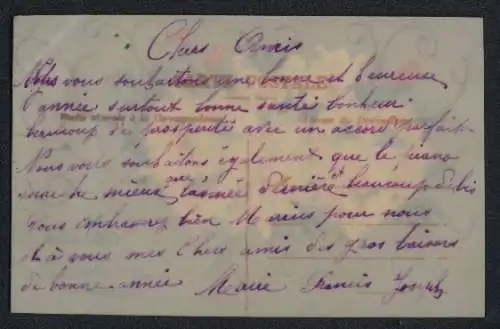 Chers Amis
Nous vous souhaitons une bonne et heureuse
année surtout bonne santé bonheur
beaucoup de prosperité avec un accord parfait
Nous vous souhaitons également que le piano
marche mieux que l'année dernière et beaucoup de
vous embrasserez bien Marius pour nous
et à vous mes chers amis des gros baisers
de bonne année Marie Francis Joseph